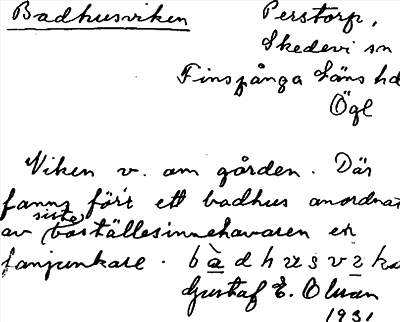 Badhusviken
Perstorp,
Skedevi sn
Finspånga Läns hd
Ögl
Viken v. om gården. Där
fanns förr ett badhus anordnat
av siste boställesinnehavaren en
fanjunkare. bàdhusvika
Gustaf E. Olsson
1931